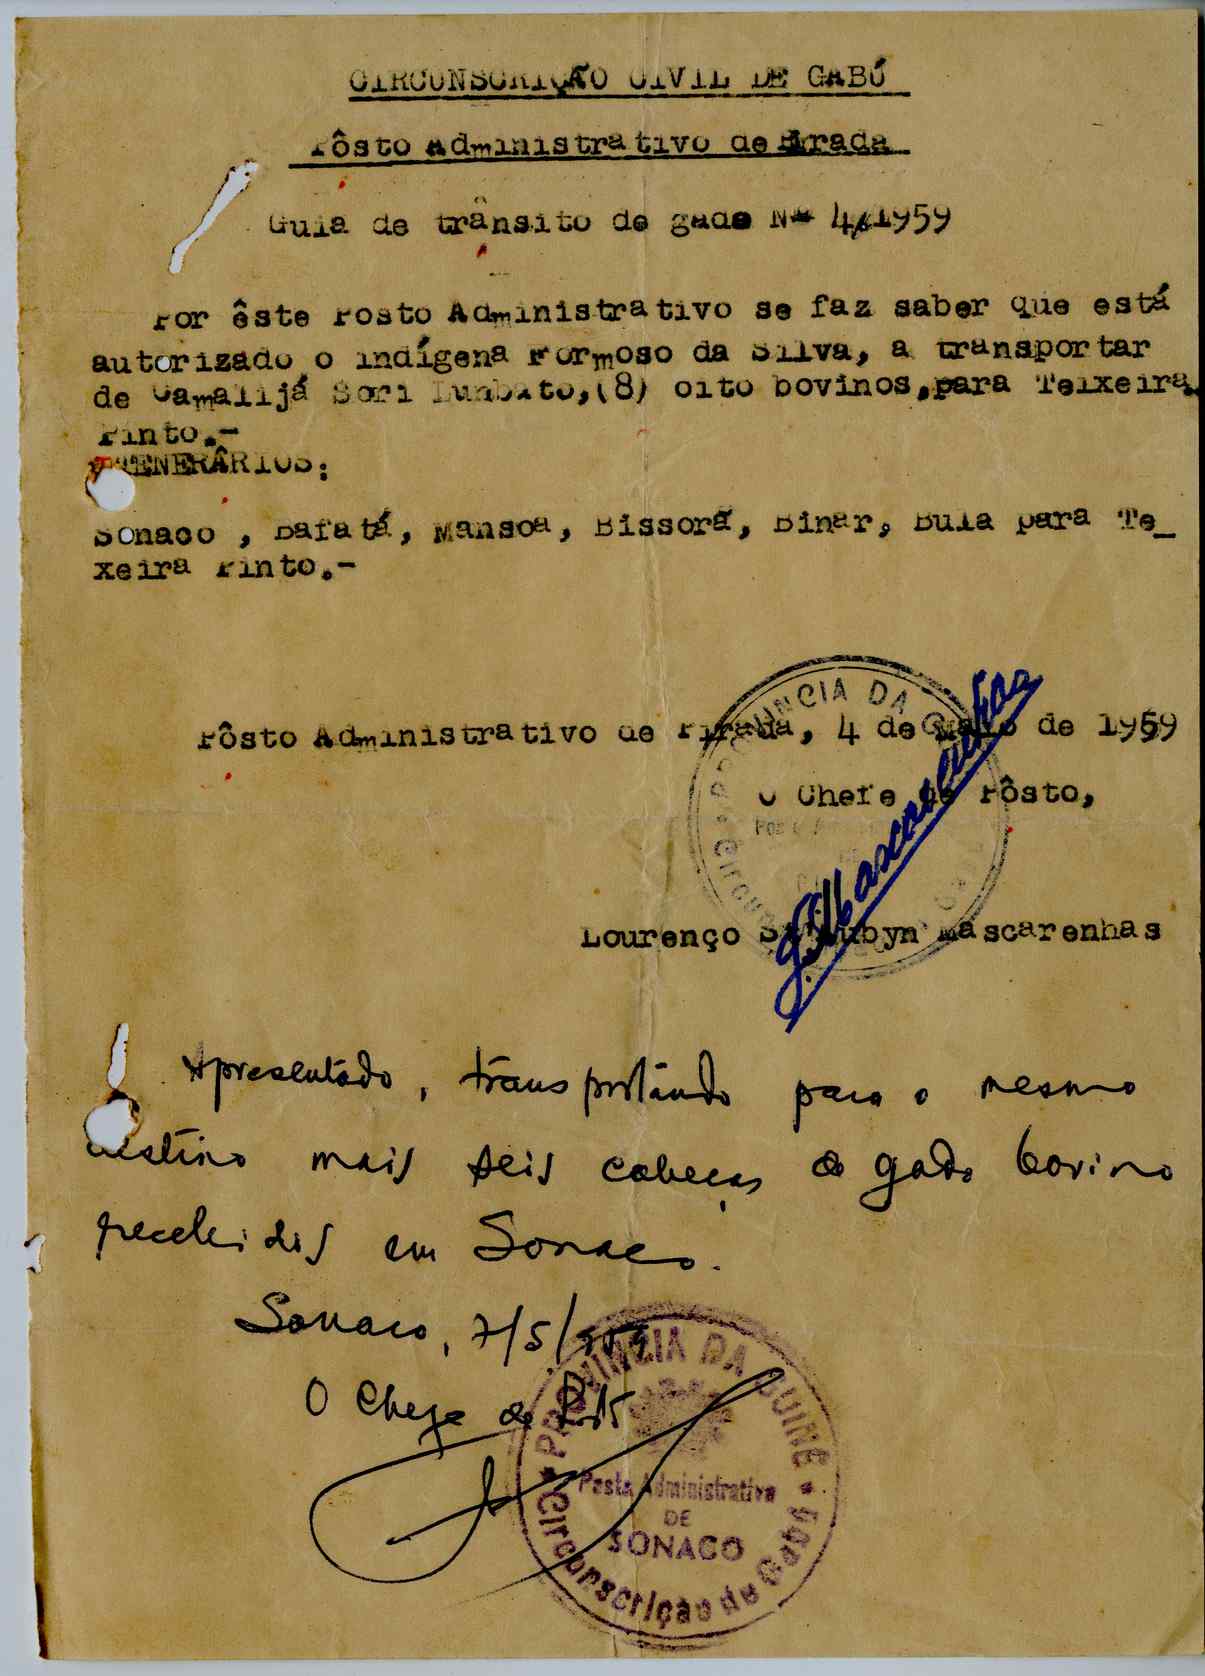 CIRCUNSCRIÇÃO CIVIL DE GABÚ
Pôsto Administrativo de Pirada
Guia de trânsito de gado Nº 4/1959
Por êste Posto Administrativo se faz saber que está
autorizado o indígena Formoso da Silva, a transportar
de Camalijá Sori (8) oito bovinos, para Teixeira
Pinto.-
ITENERÂRIOS:
Sonaco , Bafatá, Mansoa, Bissorã, Binar, Bula para Te_
xeira Pinto.-
PROVINCIA DA
Pôsto Administrativo de Pirada, 4 de Maio de 1959
O Chefe de Pôsto,
Lourenço Mascarenhas
Apresentado, transportando para o mesmo
destino mais seis cabeças de gado bovino
recebidos em Sonaco.
Sonaco, 7/5/959
O Chefe de Posto
PROVINCIA DA GUINÉ
Posto Administrativo
DE
SONACO
Circunscrição de Gabú